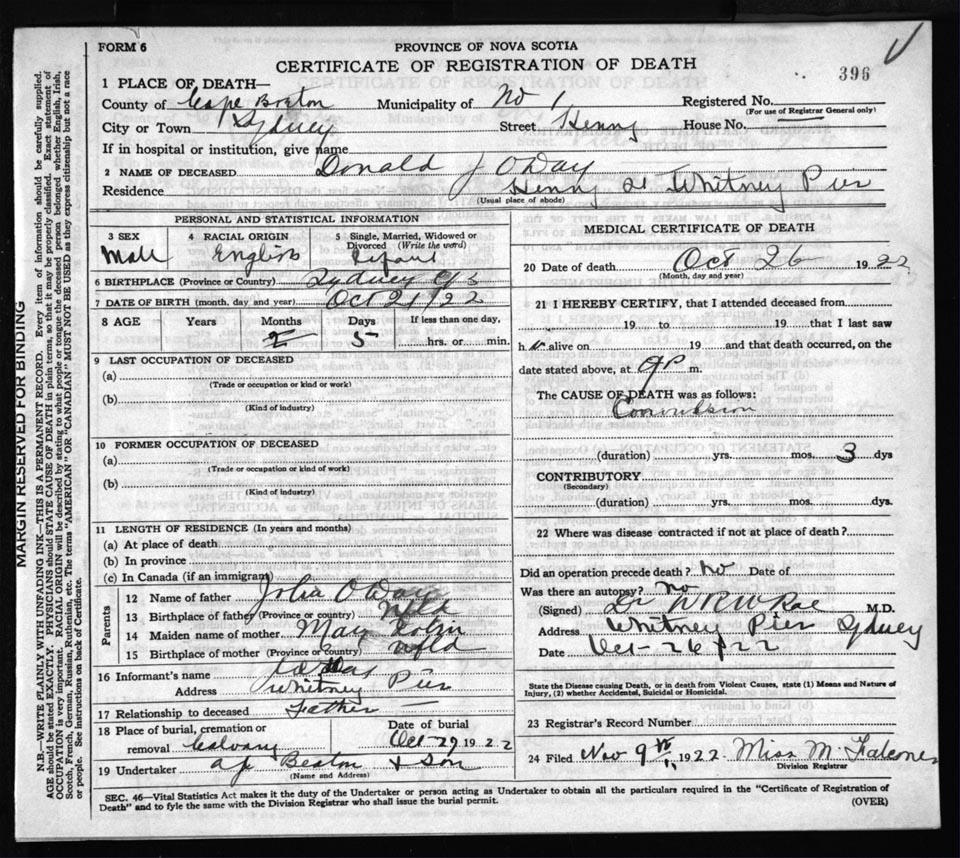 FORM 6
PROVINCE OF NOVA SCOTIA
CERTIFICATE OF REGISTRATION OF DEATH
396
1 PLACE OF DEATH—
County of Cape Breton Municipality of No 1 Registered No.
(For use of Registrar General only)
City or Town Sydney Street Henry House No.
If in hospital or institution, give name
2 NAME OF DECEASED Donald J O Day
Residence Henry St Whitney Pier
(Usual place of abode)
PERSONAL AND STATISTICAL INFORMATION
3 SEX 4 RACIAL ORIGIN 5 Single, Married, Widowed or Divorced (Write the word)
Male English Infant
6 BIRTHPLACE (Province or Country) Sydney
7 DATE OF BIRTH (month, day and year) Oct 21/22
8 AGE Years Months Days If less than one day,
5 hrs. or min.
9 LAST OCCUPATION OF DECEASED
(a)
(Trade or occupation or kind or work)
(b)
(Kind of industry)
10 FORMER OCCUPATION OF DECEASED
(a)
(Trade or occupation or kind of work)
(b)
(Kind of industry)
11 LENGTH OF RESIDENCE (In years and months)
(a) At place of death
(b) In province
(c) In Canada (if an immigrant)
Parents
12 Name of father John O Day
13 Birthplace of father (Province or country) Nfld
14 Maiden name of mother May
15 Birthplace of mother (Province or country) Nfld
16 Informant's name
Address Whitney Pier
17 Relationship to deceased Father
18 Place of burial, cremation or removal Calvary
Date of burial Oct-27 1922
19 Undertaker A J Beaton & Son
(Name and Address)
MEDICAL CERTIFICATE OF DEATH
20 Date of death Oct 26 1922
(Month, day and year)
21 I HEREBY CERTIFY, that I attended deceased from
19 to 19 that I last saw
h alive on 19 and that death occurred, on the
date stated above, at 9 P m.
The CAUSE OF DEATH was as follows:
Convulsion
(duration) yrs. mos. 3 dys
CONTRIBUTORY
(Secondary)
(duration) yrs. mos. dys.
22 Where was disease contracted if not at place of death?
Did an operation precede death? No Date of
Was there an autopsy? No
(Signed) Dr M.D.
Address Whitney Pier Sydney
Date Oct-26/22
State the Disease causing Death, or in death from Violent Causes, state (1) Means and Nature of
Injury, (2) whether Accidental, Suicidal or Homicidal.
23 Registrar's Record Number
24 Filed Nov 9th 1922 Miss M
Division Registrar
SEC. 46—Vital Statistics Act makes it the duty of the Undertaker or person acting as Undertaker to obtain all the particulars required in the "Certificate of Registration of
Death" and to fyle the same with the Division Registrar who shall issue the burial permit.
(OVER)
MARGIN RESERVED FOR BINDING
N.B.—WRITE PLAINLY WITH UNFADING INK—THIS IS A PERMANENT RECORD. Every item of information should be carefully supplied.
AGE should be stated EXACTLY. PHYSICIANS should STATE CAUSE OF DEATH in plain terms, so that it may be properly classified. Exact statement of
OCCUPATION is very important. RACIAL ORIGIN will be described by stating to what people or tongue the deceased person belonged whether English, Irish,
Scotch, French, German, Russian, Ruthenian, etc. The terms "AMERICAN" or "CANADIAN" MUST NOT BE USED as they express citizenship but not a race
or people. See instructions on back of Certificate.